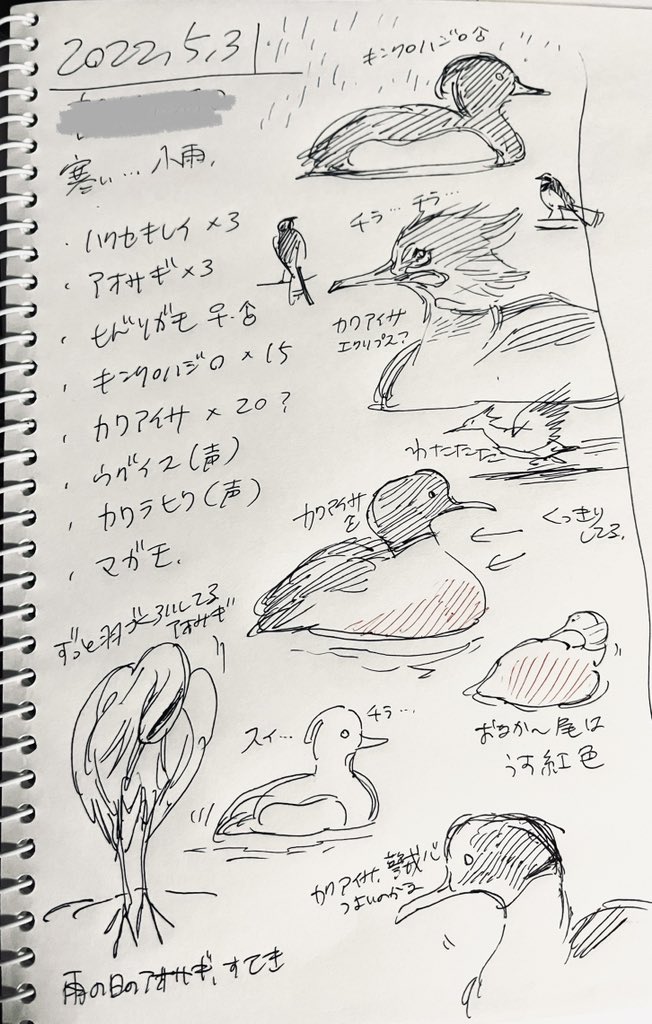 2022.5.31
寒い…小雨。
・ハクセキレイ×3
・アオサギ×3
・ヒドリガモ♀♂
・キンクロハジロ×15
・カワアイサ×20?
・ウグイス(声)
・カワラヒワ(声)
・マガモ。
キンクロハジロ♂
チラ…チラ…
カワアイサ
エクリプス?
わたたたた
カワアイサ
♂
くっきり
してる。
ずっと羽づくろいしてる
アオサギ
スイ…
チラ…
おなか〜尾は
うす紅色
カワアイサ、警戒心
つよいのかな
雨の日のアオサギ、すてき